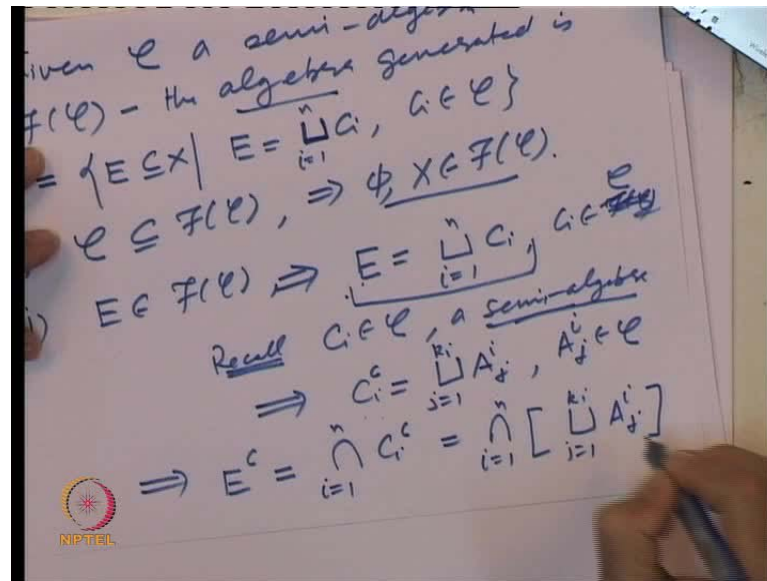 iven 𝒞 a semi-algebra
ℱ(𝒞) - the algebra generated is
= {E ⊆ X | E = ⊔_{i=1}^{n} Ci, Ci ∈ 𝒞}
𝒞 ⊆ ℱ(𝒞), ⇒ φ, X ∈ ℱ(𝒞).
i) E ∈ ℱ(𝒞) ⇒ E = ⊔_{i=1}^{n} Ci, Ci ∈ 𝒞
Recall Ci ∈ 𝒞, a semi-algebra
⇒ Ci^c = ⊔_{j=1}^{ki} A_j^i, A_j^i ∈ 𝒞
⇒ E^c = ∩_{i=1}^{n} Ci^c = ∩_{i=1}^{n} [⊔_{j=1}^{ki} A_j^i]
NPTEL